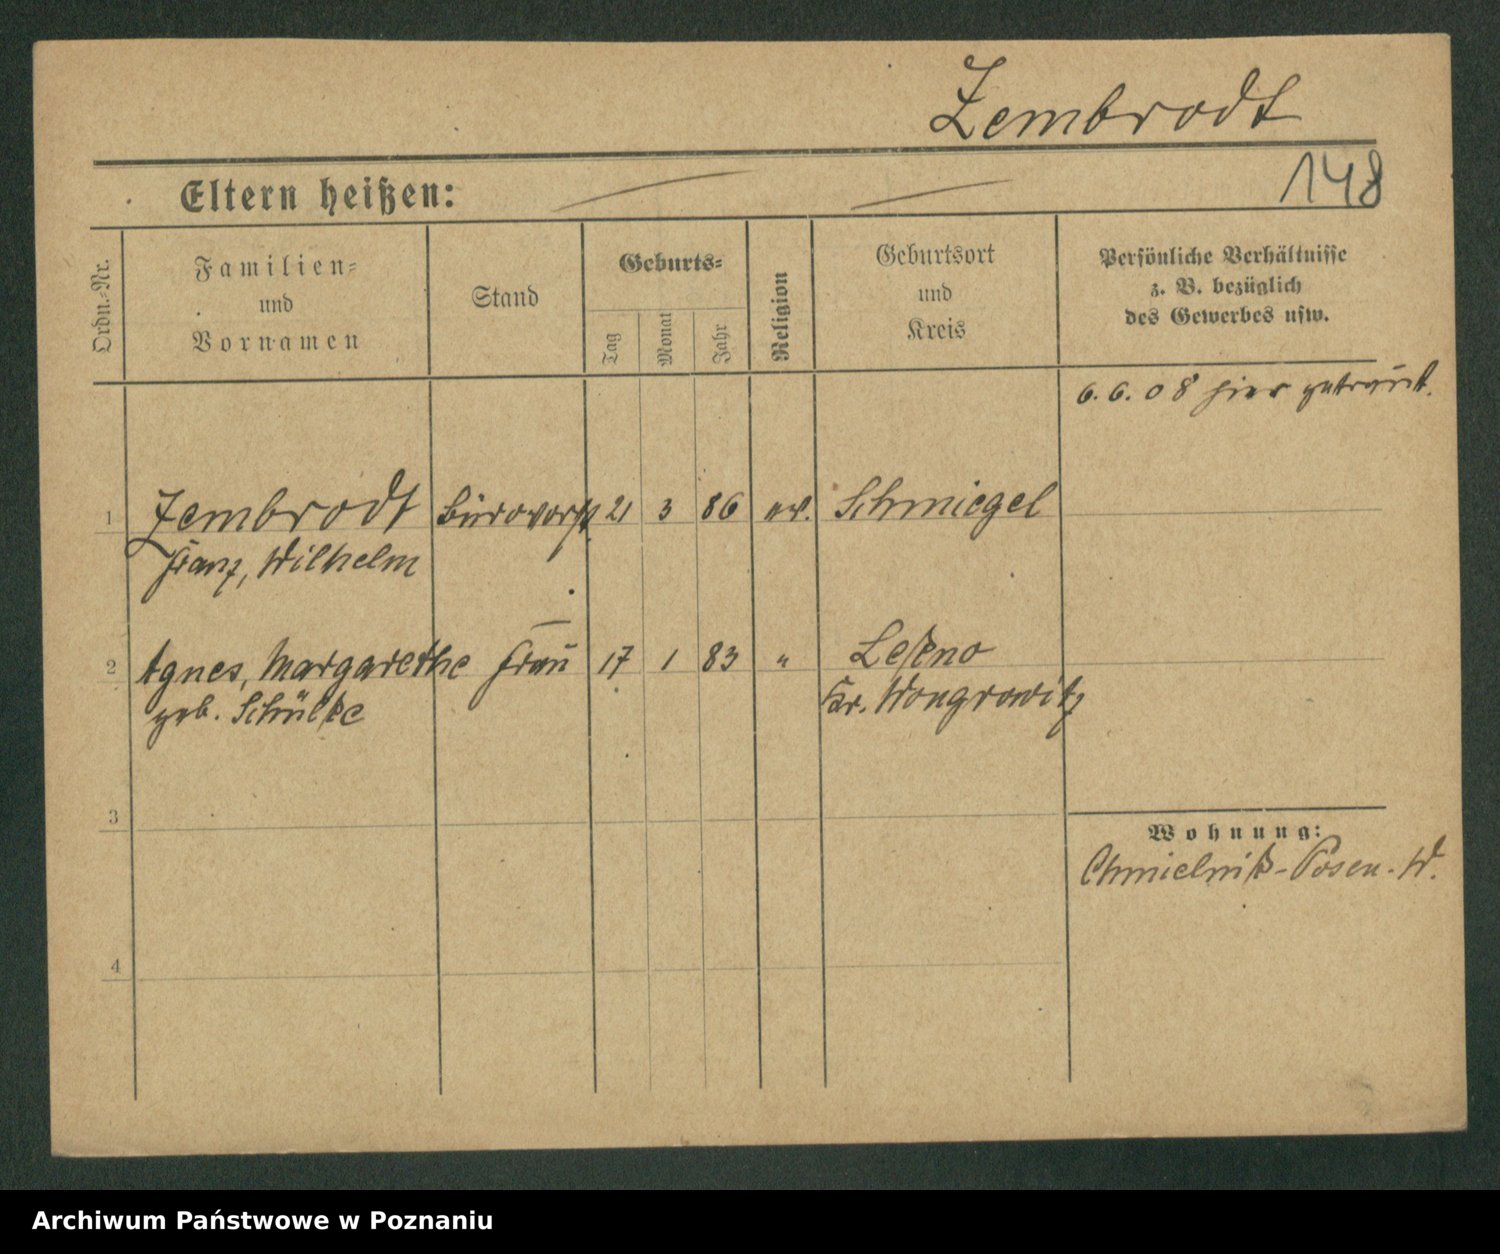 Zembrodt
148
Eltern heißen:
Ordn.-Nr.
Familien-
und
Vornamen
Stand
Geburts-
Tag
Monat
Jahr
Religion
Geburtsort
und
Kreis
Persönliche Verhältnisse
z. B. bezüglich
des Gewerbes usw.
6.6.08 hier getraut.
1 Zembrodt Bürovorst. 21 3 86 ev. Schmiegel
Franz, Wilhelm
2 Agnes, Margarethe Frau 17 1 83 " Lekno
geb. Schülke Kr. Wongrowitz
3
Wohnung:
Chmielnik-Posen. W.
4
Archiwum Państwowe w Poznaniu